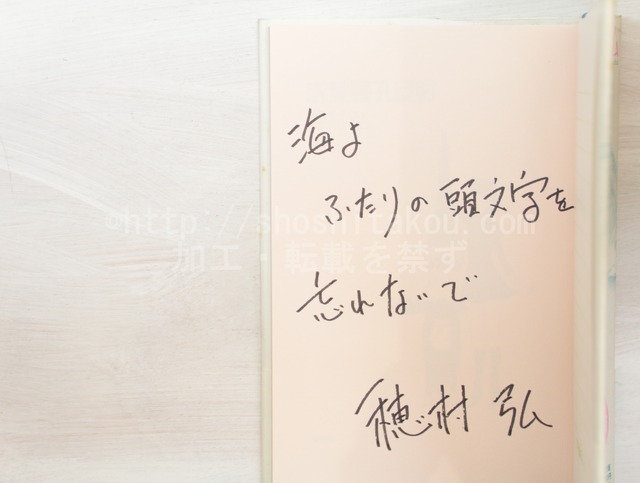 海よ
ふたりの頭文字を
©http://shoshitakou.com
加工・転載を禁ず
忘れないで
穂村弘